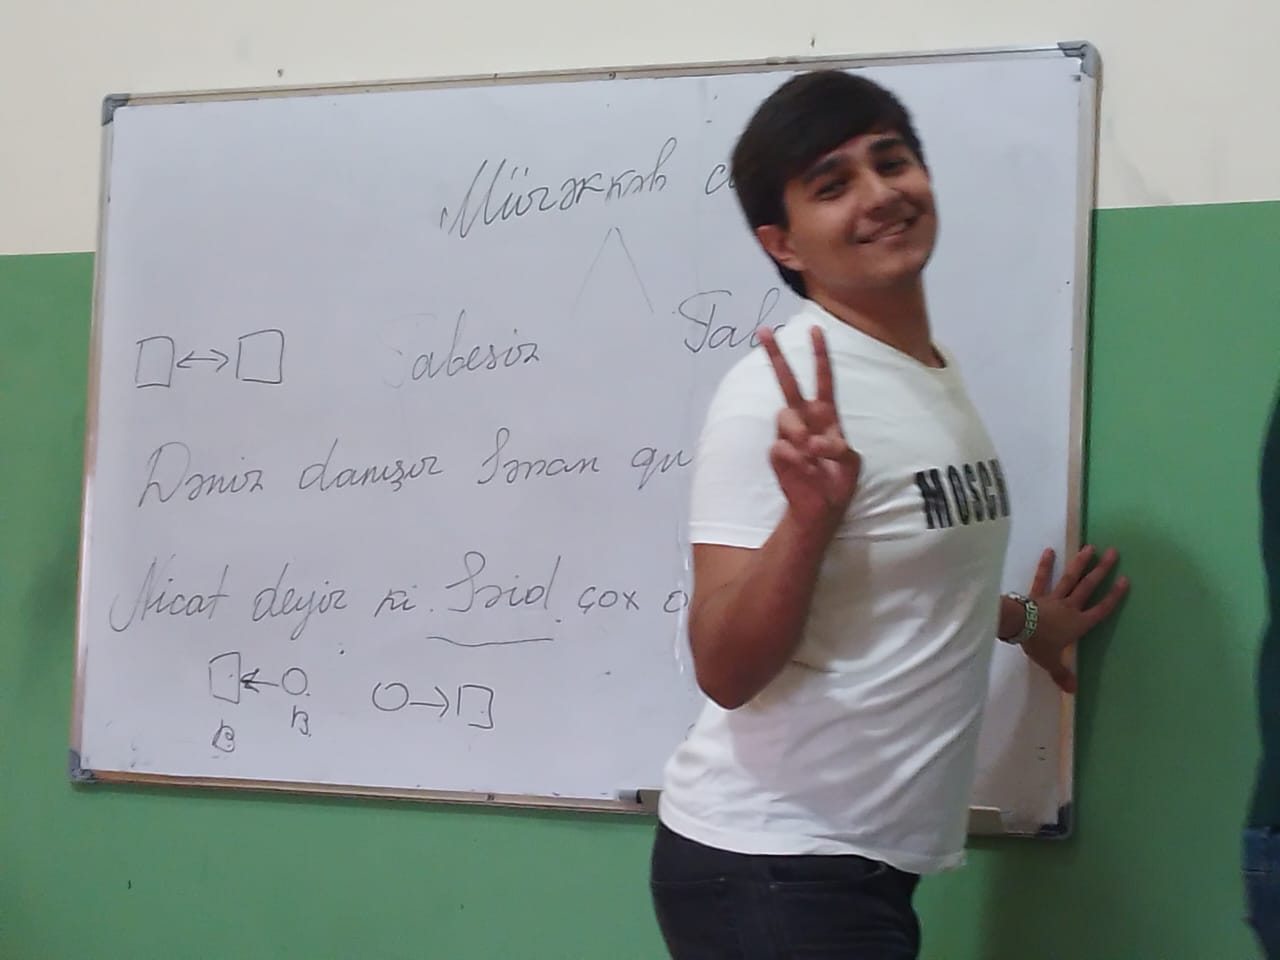 Mürəkkəb c
Tabesiz Tabe
Dəniz danışır Sənan qu
Nicat deyir ki Səid çox o
B B
MOSCH